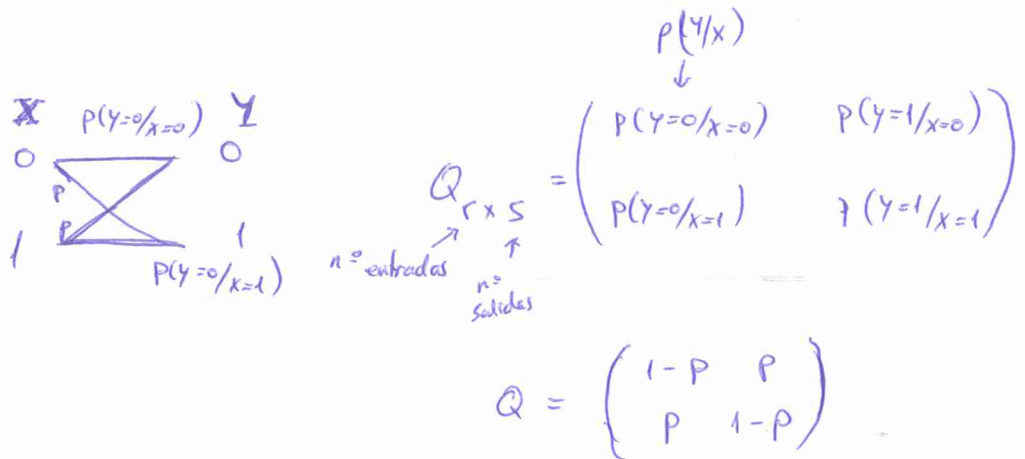 P(Y/X)
↓
X P(Y=0/X=0) Y
0 0
P
P
1 1
P(Y=0/X=1)
Q r x s = ( P(Y=0/X=0) P(Y=1/X=0)
P(Y=0/X=1) (Y=1/X=1) )
nº entradas
nº
salidas
Q = ( 1-P P
P 1-P )